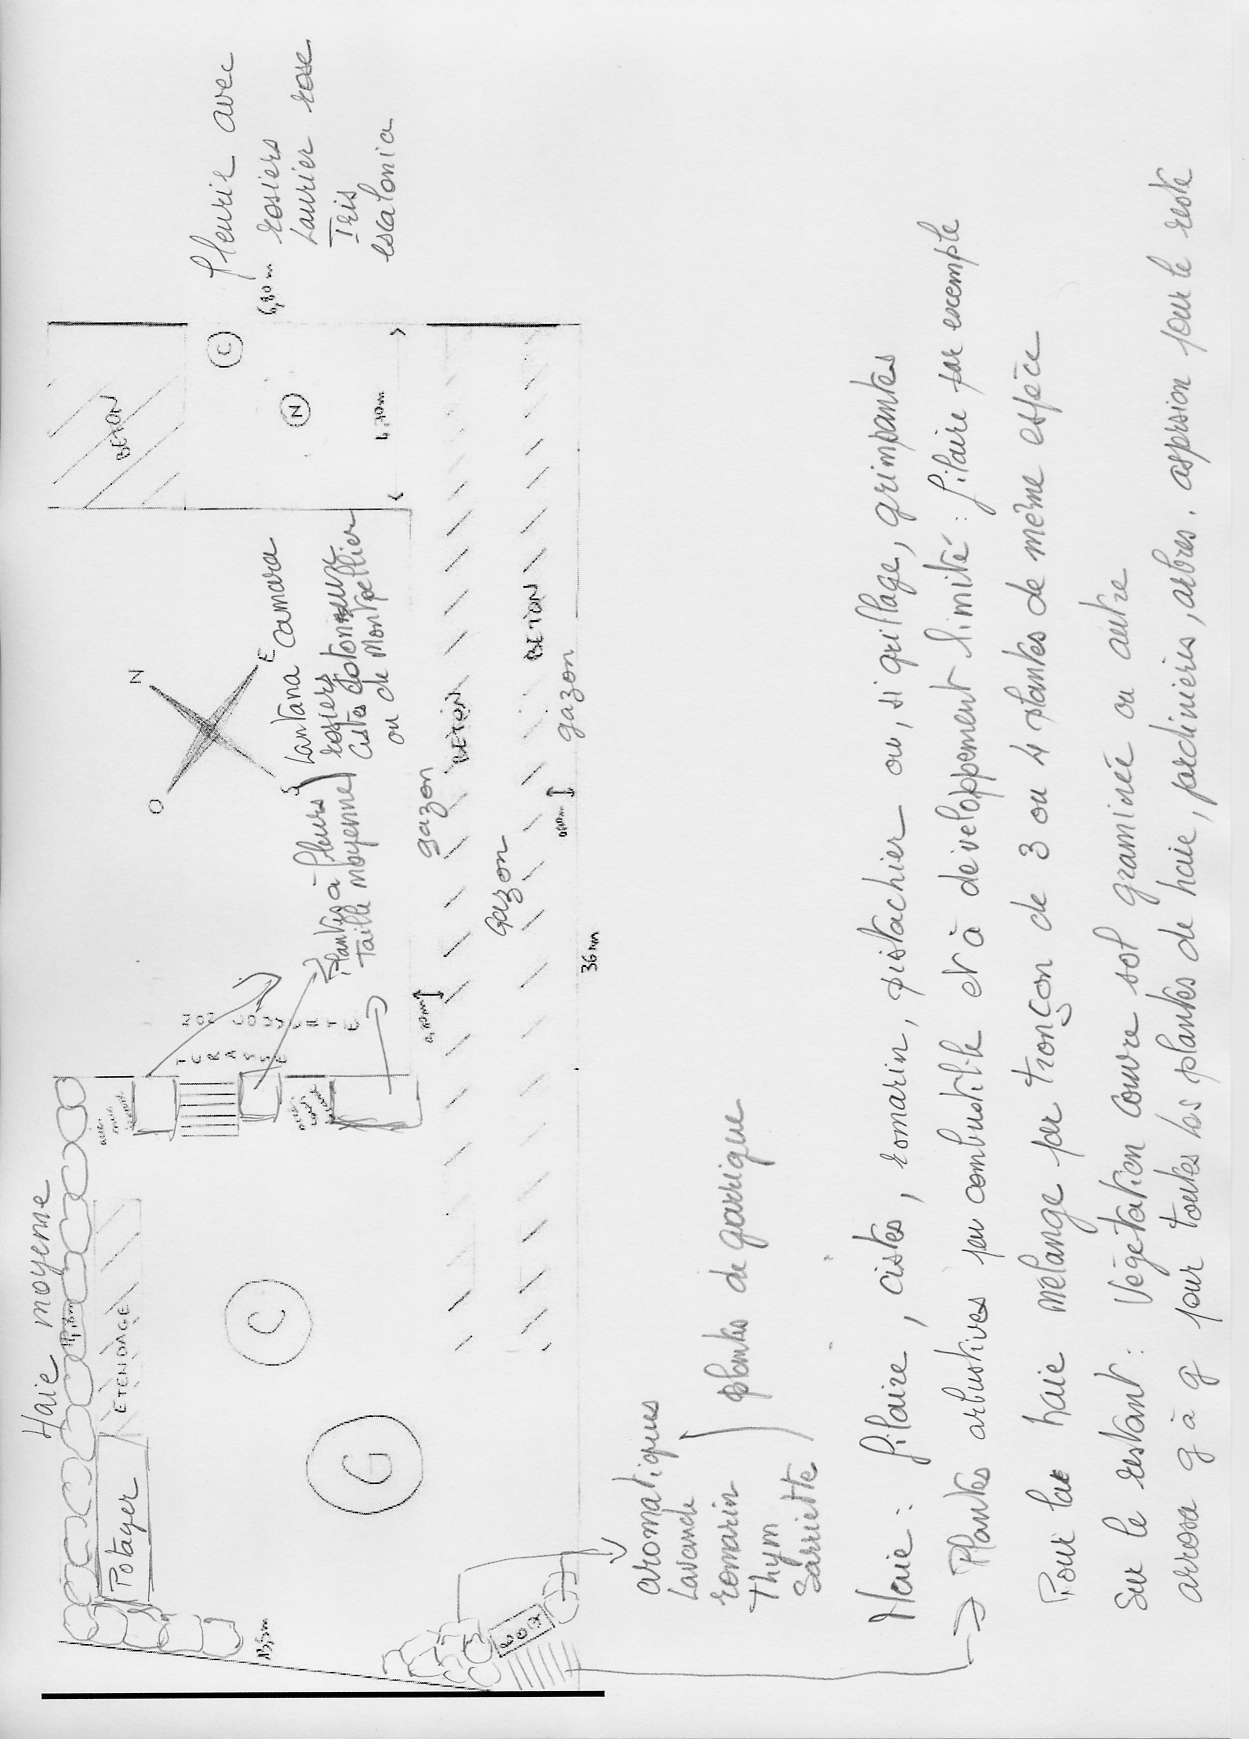 Haie moyenne
11,3m
Potager
ETENDAGE
13,5m
G
C
BBQ
NON COUVERTE
TERRASSE
N
E
S
O
Plantes à fleurs
Taille moyenne
Lantana camara
rosiers
Cistes cotonneux
ou de Montpellier
BETON
C
N
6,80m
4,70m
fleurir avec
rosiers
Laurier rose
Iris
escalonia
gazon
BETON
Gazon
BETON
gazon
36m
aromatiques
Lavande
romarin
Thym
Sarriette
plantes de garrigue
Haie : filaire, cistes, romarin, pistachier ou, si grillage, grimpantes
→ Plantes arbustives peu combustible et à développement limité : filaire par exemple
Pour la haie mélange par tronçon de 3 ou 4 plantes de même espèce
Sur le restant : Végétation couvre sol graminée ou autre
arrosa g à g pour toutes les plantes de haie, jardinières, arbres. aspersion pour le reste